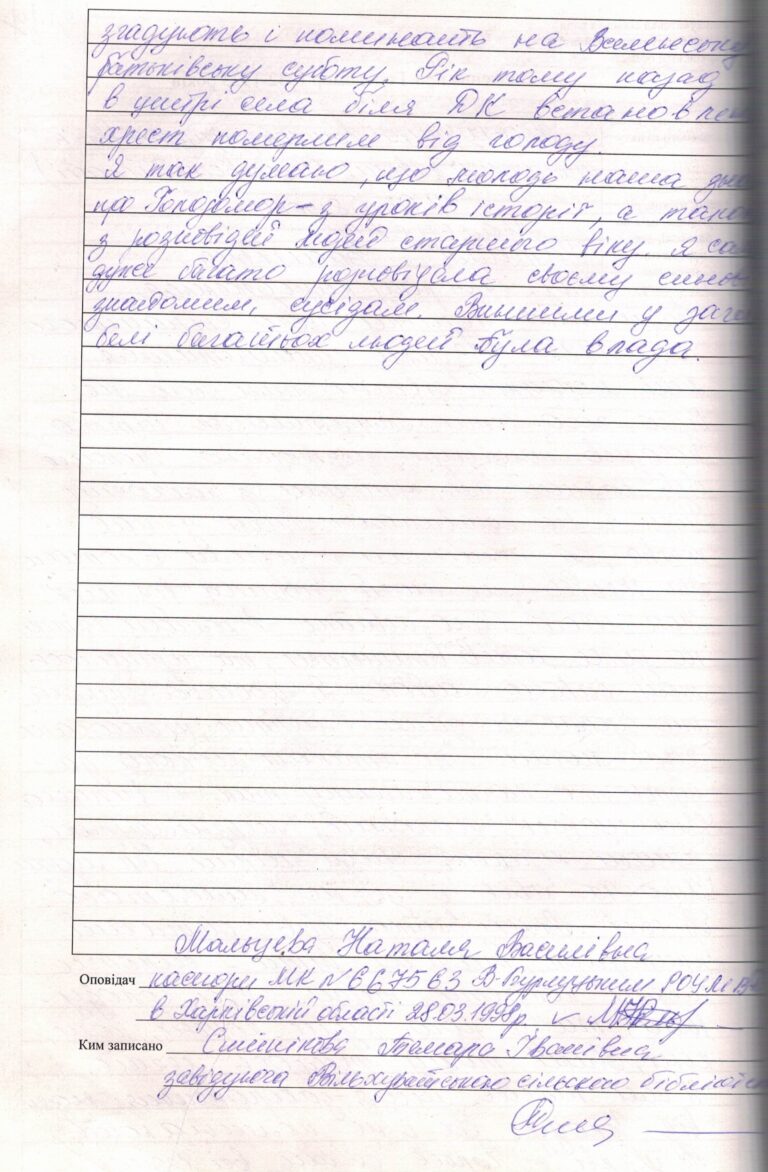 згадують і поминають на Вели
батьківську суботу. Рік тому назад
в центрі села біля ДК встановлен
хрест померлим від голоду.
Я так думаю, що молодь наша зна
про Холодомор - з уроків історії, а також
з розповідей людей старшого віку. Я сам
дуже багато розповідала своєму синов
знайомим, сусідам. Винними у заги
белі багатьох людей була влада.
Мальцева Наталя Василівна
Оповідач паспорт МК №667563 В-Бурлуцьким РОУМВ
в Харківській області 28.03.1998р. v
Ким записано Тамара Іванівна
завідуюча сільською бібліоте